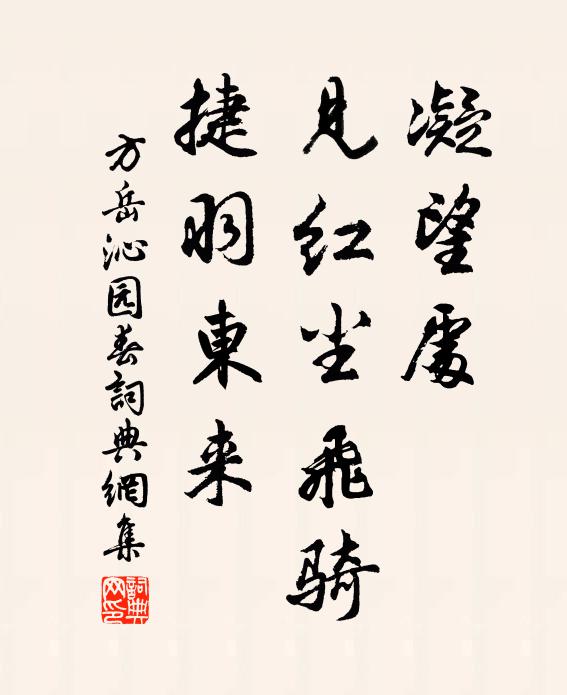 凝望處
見红尘飛騎
捷羽東来
方岳沁园春詞典網集
詞典网印